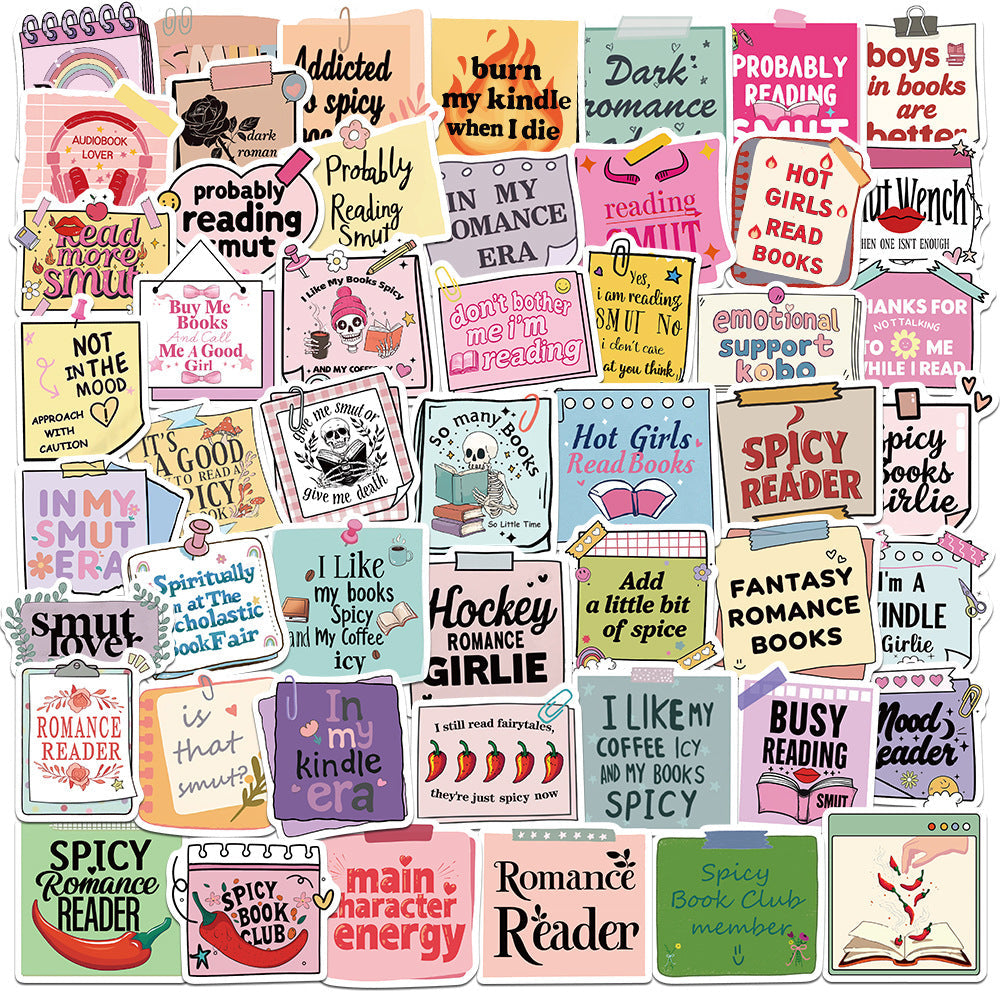 Addicted
spicy
burn
my kindle
when I die
Dark
romance
PROBABLY
READING
SMUT
boys
in books
are
better
AUDIOBOOK
LOVER
dark
roman
probably
reading
smut
Probably
Reading
Smut
IN MY
ROMANCE
ERA
reading
SMUT
HOT
GIRLS
READ
BOOKS
Wench
WHEN ONE ISN'T ENOUGH
Read
more
smut
Buy Me
Books
And Call
Me A Good
Girl
I Like My Books Spicy
AND MY COFFEE
don't bother
me i'm
reading
Yes,
i am reading
SMUT No
i don't care
at you think
emotional
support
kobo
THANKS FOR
NOT TALKING
TO ME
WHILE I READ
NOT
IN THE
MOOD
APPROACH
WITH
CAUTION
IT'S
A GOOD
TO READ A
SPICY
BOOK
give me smut or
give me death
So many Books
So Little Time
Hot Girls
Read Books
SPICY
READER
Spicy
Books
Girlie
IN MY
SMUT
ERA
Spiritually
I'm at The
Scholastic
Book Fair
I Like
my books
Spicy
and My Coffee
icy
Hockey
ROMANCE
GIRLIE
Add
a little bit
of spice
FANTASY
ROMANCE
BOOKS
I'm A
KINDLE
Girlie
smut
lover
ROMANCE
READER
is
that
smut?
In
my
kindle
era
I still read fairytales,
they're just spicy now
I LIKE MY
COFFEE ICY
AND MY BOOKS
SPICY
BUSY
READING
SMUT
Mood
Reader
SPICY
Romance
READER
SPICY
BOOK
CLUB
main
character
energy
Romance
Reader
Spicy
Book Club
member